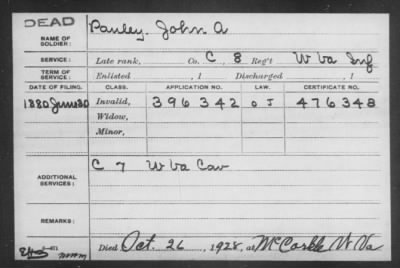 DEAD
NAME OF SOLDIER: Pauley, John A
SERVICE: Late rank, Co. C, 8 Reg't W Va Inf
TERM OF SERVICE: Enlisted , 1 Discharged , 1
DATE OF FILING. CLASS. APPLICATION NO. LAW. CERTIFICATE NO.
1880 June 30 Invalid, 396342 O J 476348
Widow,
Minor,
C 7 W Va Cav
ADDITIONAL SERVICES:
REMARKS:
Died Oct. 26, 1928, at McCorkle W Va